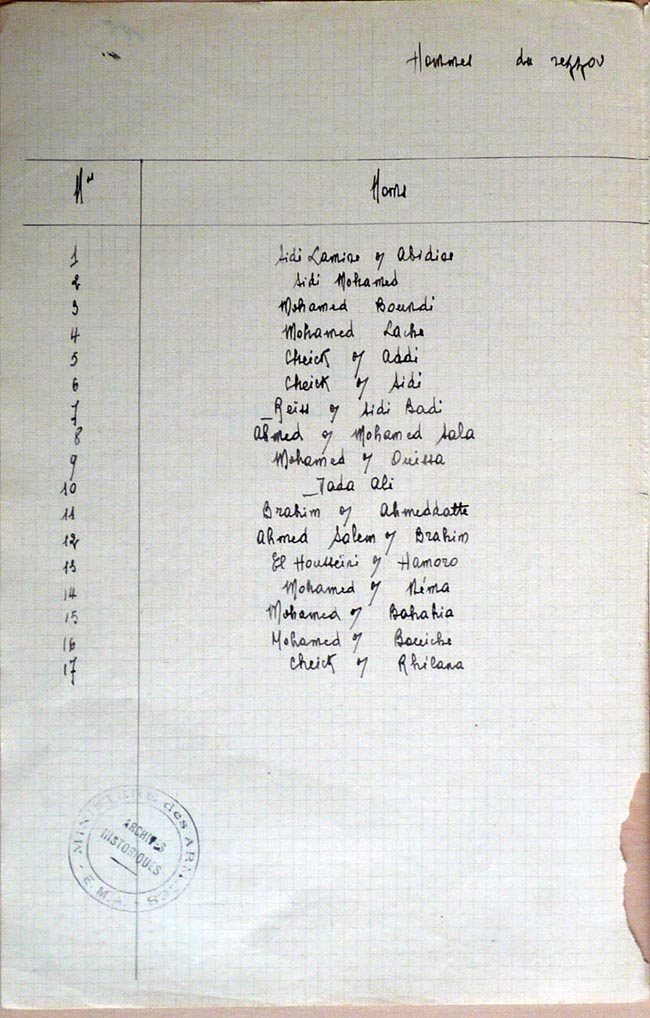 Hommes du rezzou
Nos Noms
1 Sidi Lamine of Abidine
2 Sidi Mohamed
3 Mohamed Boundi
4 Mohamed Lache
5 Cheick of Addi
6 Cheick of Sidi
7 _Reïss of Sidi Badi
8 Ahmed of Mohamed Sala
9 Mohamed of Ouissa
10 _Tada Ali
11 Brahim of Ahmeddatte
12 Ahmed Salem of Brahim
13 El Housseïni of Hamoro
14 Mohamed of Néma
15 Mohamed of Bahahia
16 Mohamed of Boueiche
17 Cheick of Rhilana
MINISTERE des ARMEES
ARCHIVES
HISTORIQUES
E.M.A.